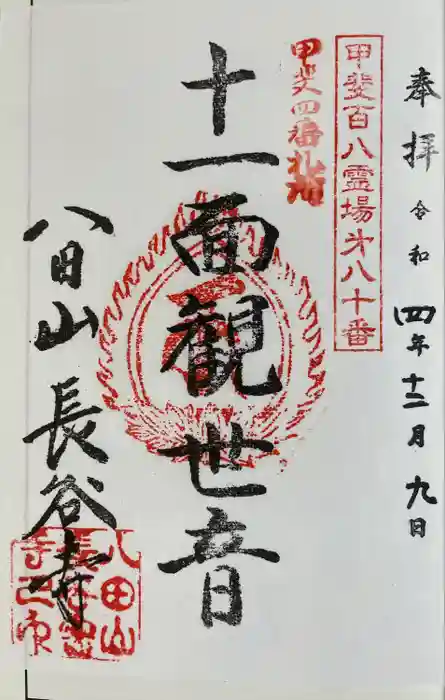 奉拝 令和四年十二月九日
甲斐百八霊場第八十番
甲斐四番札所
十一面観世音
八田山 長谷寺
八田山
長谷寺